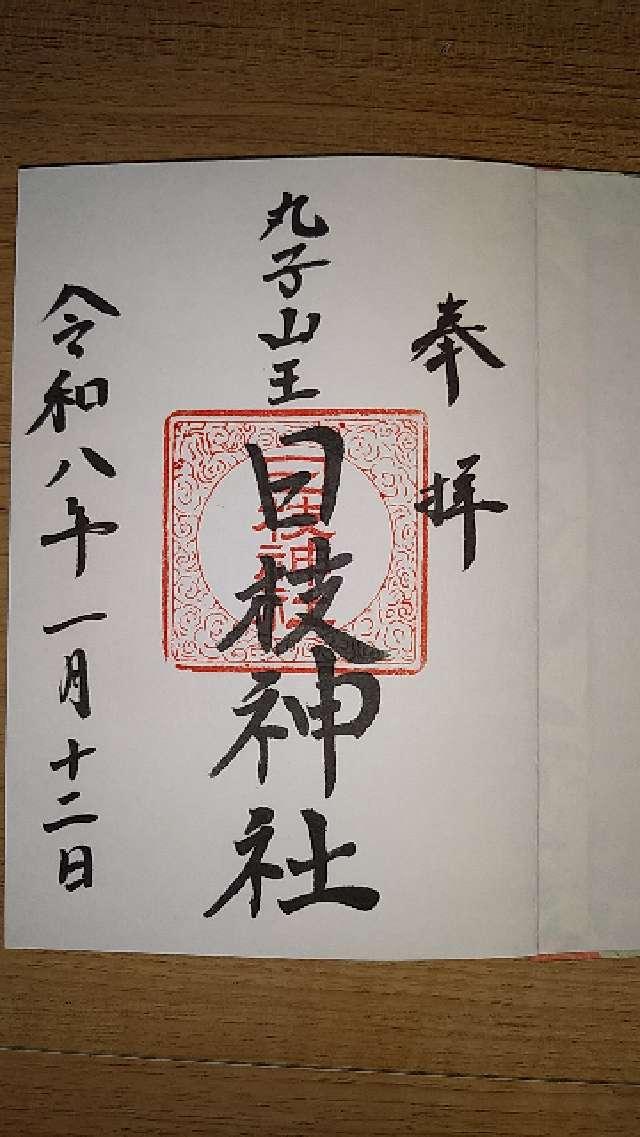 奉拝
丸子山王
日枝神社
日枝神社
令和八年一月十二日